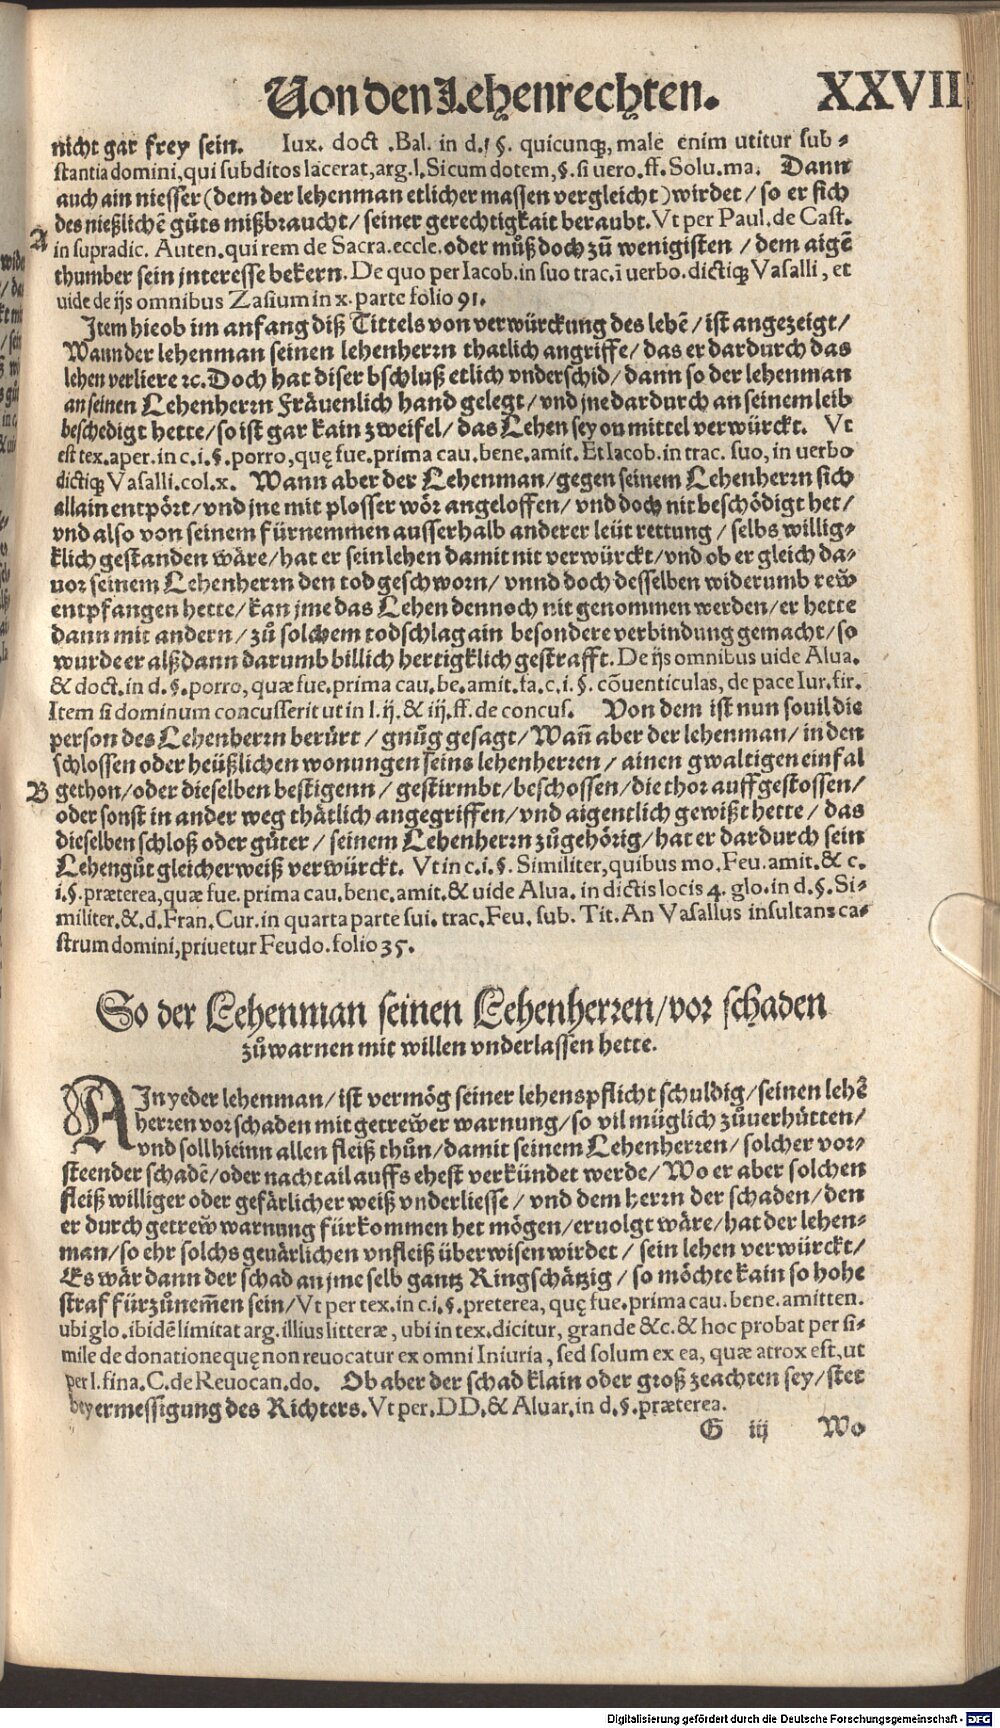 Von den Lehenrechten. XXVII
nicht gar frey sein. Iux. doct .Bal. in d. §. quicunq;, male enim utitur sub-
stantia domini, qui subditos lacerat, arg. l. Sicum dotem, §. si uero. ff. Solu. ma. Dann
auch ain niesser (dem der lehenman etlicher massen vergleicht) wirdet / so er sich
des nießlichē gůts mißbraucht / seiner gerechtigkait beraubt. Vt per Paul. de Cast.
A
in supradic. Auten. qui rem de Sacra. eccle. oder můß doch zů wenigisten / dem aigē
thumber sein jnteresse bekern. De quo per Iacob. in suo trac. ī uerbo. dictiq; Vasalli, et
uide de ijs omnibus Zasium in x. parte folio 91.
Item hieob im anfang diß Tittels von verwürckung des lehē / ist angezeigt /
Wann der lehenman seinen lehenherrn thatlich angriffe / das er dardurch das
lehen verliere ꝛc. Doch hat diser bschluß etlich vnderschid / dann so der lehenman
an seinen Lehenherrn Fräuenlich hand gelegt / vnd jne dardurch an seinem leib
beschedigt hette / so ist gar kain zweifel / das Lehen sey on mittel verwürckt. Vt
est tex. aper. in c. i. §. porro, quę fue. prima cau. bene. amit. Et Iacob. in trac. suo, in uerbo
dictiq; Vasalli. col. x. Wann aber der Lehenman / gegen seinem Lehenherrn sich
allain entpört / vnd jne mit plosser wör angeloffen / vnd doch nit beschödigt het /
vnd also von seinem fürnemmen ausserhalb anderer leüt rettung / selbs willig-
klich gestanden wäre / hat er sein lehen damit nit verwürckt / vnd ob er gleich da-
vor seinem Lehenherrn den tod geschworn / vnnd doch desselben widerumb reẅ
entpfangen hette / kan jme das Lehen dennoch nit genommen werden / er hette
dann mit andern / zů solchem todschlag ain besondere verbindung gemacht / so
wurde er alßdann darumb billich hertigklich gestrafft. De ijs omnibus uide Alua.
& doct. in d. §. porro, quæ fue. prima cau. be. amit. fa. c. i. §. cōuenticulas, de pace Iur. fir.
Item si dominum concusserit ut in l. ij. & iij. ff. de concus. Von dem ist nun souil die
person des Lehenherrn berürt / gnůg gesagt / Wañ aber der lehenman / in den
schlossen oder heüßlichen wonungen seins lehenherren / ainen gwaltigen einfal
B
gethon / oder dieselben bestigenn / gestirmbt / beschossen / die thor auffgestossen /
oder sonst in ander weg thätlich angegriffen / vnd aigentlich gewißt hette / das
dieselben schloß oder güter / seinem Lehenherrn zůgehörig / hat er dardurch sein
Lehengůt gleicherweiß verwürckt. Vt in c. i. §. Similiter, quibus mo. Feu. amit. & c.
i. §. præterea, quæ fue. prima cau. bene. amit. & uide Alua. in dictis locis 4. glo. in d. §. Si-
militer. &. d. Fran. Cur. in quarta parte sui. trac. Feu. sub. Tit. An Vasallus insultans ca-
strum domini, priuetur Feudo. folio 35.
So der Lehenman seinen Lehenherren / vor schaden
zůwarnen mit willen vnderlassen hette.
AIn yeder lehenman / ist vermög seiner lehenspflicht schuldig / seinen lehē
herren vor schaden mit getreẅer warnung / so vil müglich zůuerhütten /
vnd soll hieinn allen fleiß thůn / damit seinem Lehenherren / solcher vor-
steender schadē / oder nachtail auffs ehest verkündet werde / Wo er aber solchen
fleiß williger oder gefärlicher weiß vnderliesse / vnd dem herrn der schaden / den
er durch getreẅ warnung fürkommen het mögen / eruolgt wäre / hat der lehen-
man / so ehr solchs geuärlichen vnfleiß überwisen wirdet / sein lehen verwürckt /
Es wär dann der schad an jme selb gantz Ringschätzig / so möchte kain so hohe
straf fürzůnem̄en sein / Vt per tex. in c. i. §. preterea, quę fue. prima cau. bene. amitten.
ubi glo. ibidē limitat arg. illius litteræ, ubi in tex. dicitur, grande &c. & hoc probat per si-
mile de donatione quę non reuocatur ex omni Iniuria, sed solum ex ea, quæ atrox est, ut
per l. fina. C. de Reuocan. do. Ob aber der schad klain oder groß zeachten sey / stet
bey ermessigung des Richters. Vt per. DD. & Aluar. in d. §. præterea.
G iij Wo
Digitalisierung gefördert durch die Deutsche Forschungsgemeinschaft - DFG